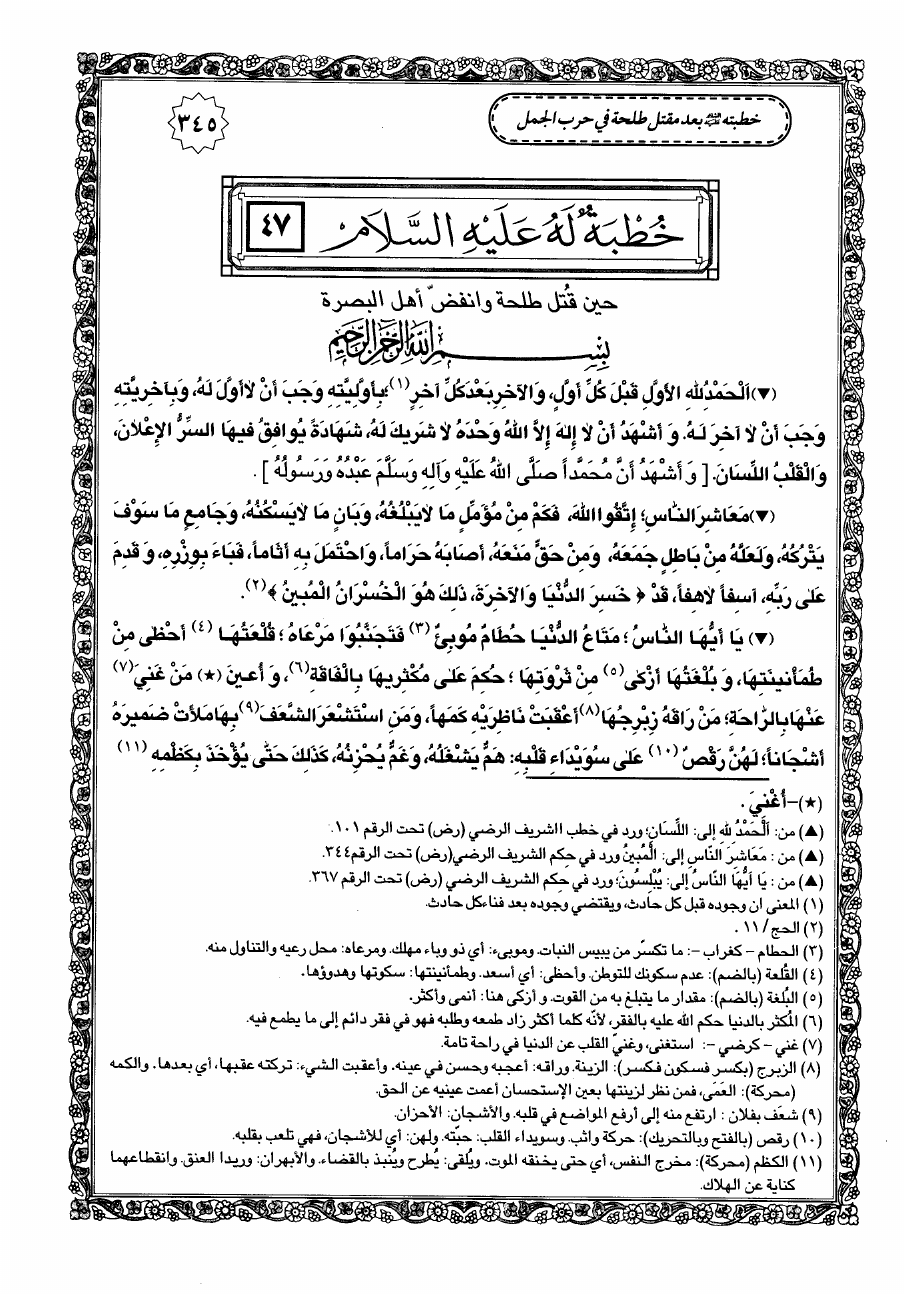 خطبته ﷺ بعد مقتل طلحة في حرب الجمل
٣٤٥
خُطْبَةٌ لَهُ عَلَيْهِ السَّلَامُ ٤٧
حين قُتل طلحة وانفضّ أهل البصرة
بِسْمِ اللَّهِ الرَّحْمَنِ الرَّحِيمِ
(▼) اَلْحَمْدُ لِلّٰهِ الأَوَّلِ قَبْلَ كُلِّ أَوَّلٍ، وَالآخِرِ بَعْدَ كُلِّ آخِرٍ (١)؛ بِأَوَّلِيَّتِهِ وَجَبَ أَنْ لَا أَوَّلَ لَهُ، وَبِآخِرِيَّتِهِ
وَجَبَ أَنْ لَا آخِرَ لَهُ. وَ أَشْهَدُ أَنْ لَا إِلٰهَ إِلاَّ اللهُ وَحْدَهُ لَا شَرِيكَ لَهُ، شَهَادَةً يُوَافِقُ فيهَا السِّرُّ الإِعْلَانَ،
وَالْقَلْبُ اللِّسَانَ. [ وَ أَشْهَدُ أَنَّ مُحَمَّداً صَلَّى اللهُ عَلَيْهِ وَآلِهِ وَسَلَّمَ عَبْدُهُ وَرَسُولُهُ ] .
(▼) مَعَاشِرَ النَّاسِ؛ إِتَّقُوا اللهَ، فَكَمْ مِنْ مُؤَمِّلٍ مَا لَا يَبْلُغُهُ، وَبَانٍ مَا لَا يَسْكُنُهُ، وَجَامِعٍ مَا سَوْفَ
يَتْرُكُهُ، وَلَعَلَّهُ مِنْ بَاطِلٍ جَمَعَهُ، وَمِنْ حَقٍّ مَنَعَهُ، أَصَابَهُ حَرَاماً، وَاحْتَمَلَ بِهِ أَثَاماً، فَبَاءَ بِوِزْرِهِ، وَقَدِمَ
عَلٰى رَبِّهِ، آسِفاً لَاهِفاً، قَدْ ﴿ خَسِرَ الدُّنْيَا وَالآخِرَةَ، ذَلِكَ هُوَ الْخُسْرَانُ الْمُبينُ ﴾ (٢).
(▼) يَا أَيُّهَا النَّاسُ؛ مَتَاعُ الدُّنْيَا حُطَامٌ مُوبِئٌ (٣) فَتَجَنَّبُوا مَرْعَاهُ؛ قُلْعَتُهَا (٤) أَحْظٰى مِنْ
طُمَأْنينَتِهَا، وَ بُلْغَتُهَا أَزْكٰى (٥) مِنْ ثَرْوَتِهَا؛ حُكِمَ عَلٰى مُكْثِريهَا بِالْفَاقَةِ (٦)، وَ أُعينَ (★) مَنْ غَنِيَ (٧)
عَنْهَا بِالرَّاحَةِ؛ مَنْ رَاقَهُ زِبْرِجُهَا (٨) أَعْقَبَتْ نَاظِرَيْهِ كَمَهاً، وَمَنِ اسْتَشْعَرَ الشَّعَفَ (٩) بِهَا مَلأَتْ ضَميرَهُ
أَشْجَاناً؛ لَهُنَّ رَقْصٌ (١٠) عَلٰى سُوَيْدَاءِ قَلْبِهِ: هَمٌّ يَشْغَلُهُ، وَغَمٌّ يُحْزِنُهُ، كَذٰلِكَ حَتّٰى يُؤْخَذَ بِكَظْمِهِ (١١)
(★)–أُغْنِيَ .
(▲) من: اَلْحَمْدُ لِلّٰهِ إلى: اللِّسَانِ؛ ورد في خطب الشريف الرضي (رض) تحت الرقم ١٠١.
(▲) من : مَعَاشِرَ النَّاسِ إلى: الْمُبينُ ورد في حكم الشريف الرضي(رض) تحت الرقم ٣٤٤.
(▲) من : يَا أَيُّهَا النَّاسُ إلى: يُبْلِسُونَ؛ ورد في حكم الشريف الرضي (رض) تحت الرقم ٣٦٧.
(١) المعنى ان وجوده قبل كل حادث، ويقتضي وجوده بعد فناء كل حادث.
(٢) الحج / ١١ .
(٣) الحطام – كغراب –: ما تكسّر من يبيس النبات. وموبىء: أي ذو وباء مهلك. ومرعاه: محل رعيه والتناول منه.
(٤) القُلعة (بالضم): عدم سكونك للتوطن. وأحظى: أي أسعد. وطمأنينتها: سكونها وهدوؤها.
(٥) البُلغة (بالضم): مقدار ما يتبلغ به من القوت. و أزكى هنا: أنمى وأكثر.
(٦) المُكثر بالدنيا حكم الله عليه بالفقر، لأنّه كلما أكثر زاد طمعه وطلبه فهو في فقر دائم إلى ما يطمع فيه.
(٧) غني – كرضي –: استغنى، وغنيّ القلب عن الدنيا في راحة تامة.
(٨) الزبرج (بكسر فسكون فكسر): الزينة. وراقه: أعجبه وحسن في عينه. وأعقبت الشيء: تركته عقبها، أي بعدها. والكمه
(محركة): العَمَى، فمن نظر لزينتها بعين الإستحسان أعمت عينيه عن الحق.
(٩) شعَف بفلان : ارتفع منه إلى أرفع المواضع في قلبه. والأشجان: الأحزان.
(١٠) رقص (بالفتح وبالتحريك): حركة واثب. وسويداء القلب: حبّته. ولهن: أي للأشجان، فهي تلعب بقلبه.
(١١) الكظم (محركة): مخرج النفس، أي حتى يخنقه الموت. ويُلقى: يُطرح ويُنبذ بالقضاء. والأبهران: وريدا العنق. وانقطاعهما
كناية عن الهلاك.